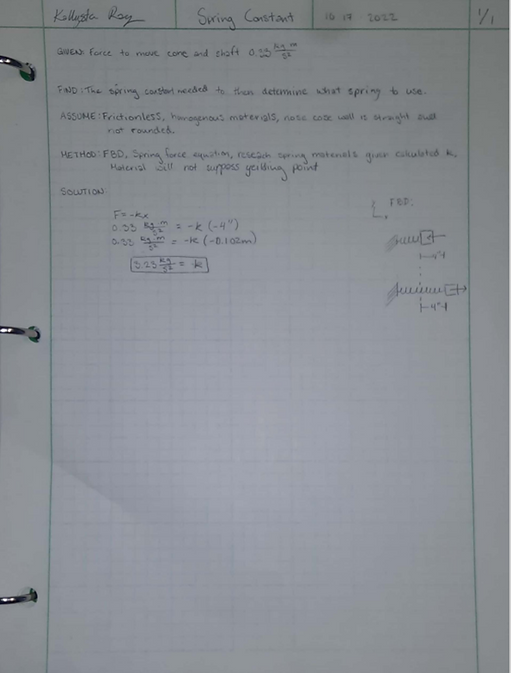 Kallysta Ray Spring Constant 10 17 2022 1/1
GIVEN: Force to move cone and shaft 0.33 kg·m/s²
FIND: The spring constant needed to then determine what spring to use.
ASSUME: Frictionless, homogenous materials, nose cone wall is straight and
not rounded.
METHOD: FBD, Spring force equation, research spring materials given calculated k,
Material will not surpass yeilding point
SOLUTION:
F=-kx
FBD:
0.33 kg·m/s² = -k (-4")
0.33 kg·m/s² = -k (-0.102m)
3.23 kg/s² = k
4"
4"